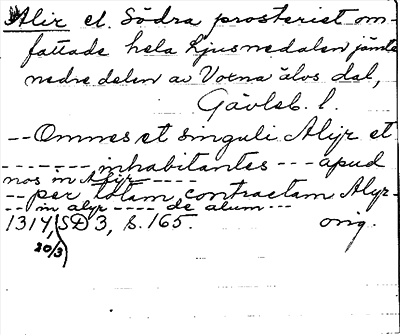 Alir el. Södra prosteriet om-
fattade hela Ljusnedalen jämte
nedre delen av Voxna älvs dal,
Gävleb. l.
-- Omnes et singuli Alyr et
------- inhabitantes --- apud
nos in Alyr -----
-- per totam contractam Alyr-
--- in alyr ---- de alum ---
1314, SD 3, s. 165. orig.
20/3